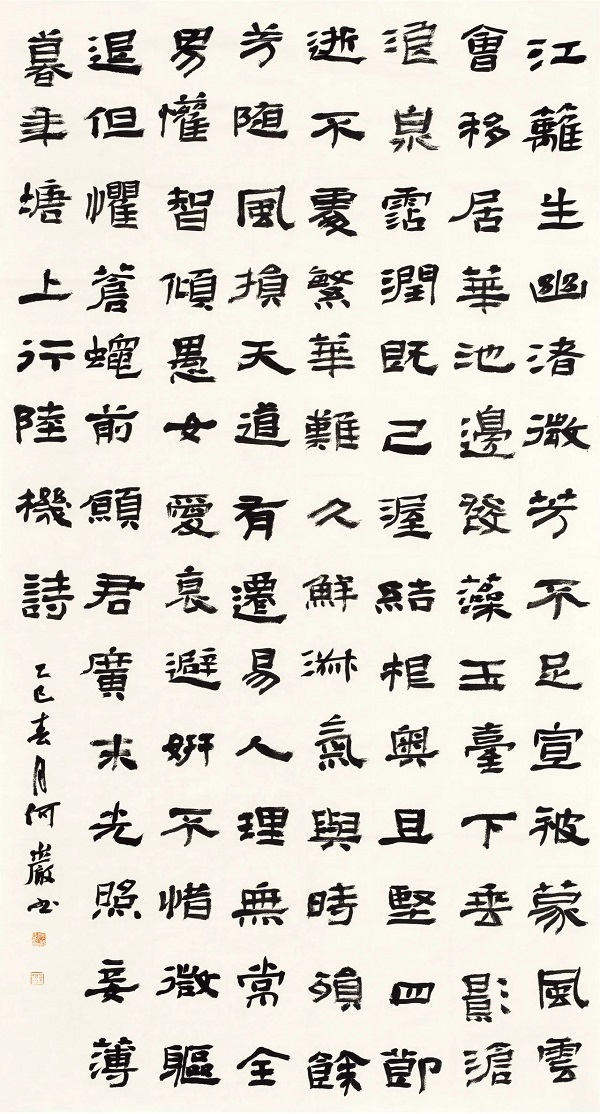 江蘺生幽渚微芳不足宣被蒙風雲
會移居華池邊發藻玉臺下垂影滄
浪泉霑潤既已渥結根奧且堅四節
逝不處繁華難久鮮淑氣與時殞餘
芳隨風損天道有遷易人理無常全
男懽智傾愚女愛衰避妍不惜微軀
退但懼蒼蠅前願君廣末光照妾薄
暮年塘上行陸機詩
乙巳春月何巖书